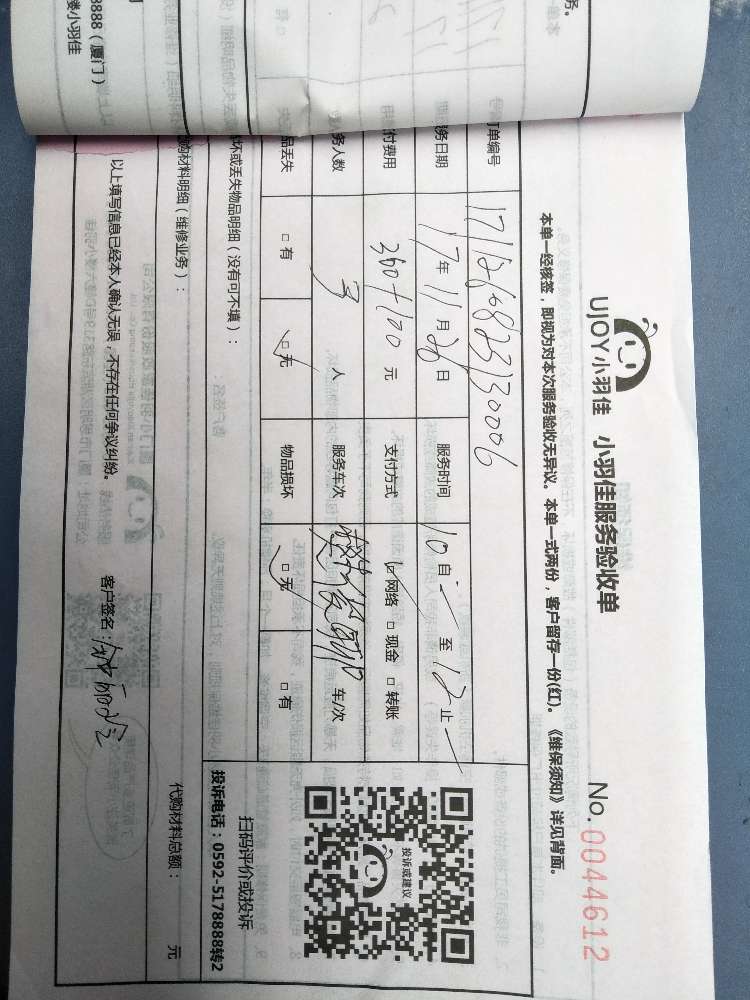 UJOY小羽佳 小羽佳服务验收单
No.0044612
本单一经核签，即视为对本次服务验收无异议。本单一式两份，客户留存一份(红)。《维保须知》详见背面。
订单编号
务日期 17年11月26日 服务时间 10自 至12止
付费用 360+100元 支付方式 网络 □现金 □转账
务人数 3人 服务车次 车/次
品丢失 □有 □无 物品损坏 □无 □有
坏或丢失物品明细（没有可不填）：
购材料明细（维修业务）：
代购材料总额： 元
以上填写信息已经本人确认无误，不存在任何争议纠纷。
客户签名：
投诉或建议
扫码评价或投诉
投诉电话：0592-5178888转2
务。
8888（厦门）
楼小羽佳